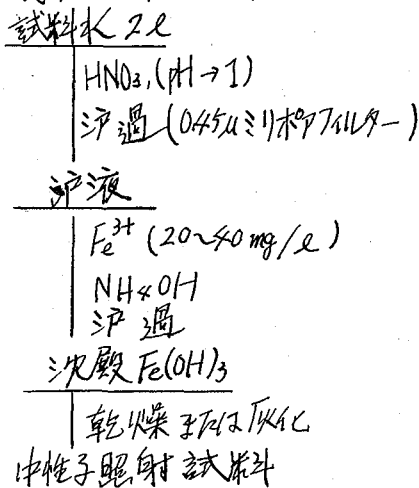 試料水 2ℓ
HNO₃,(pH→1)
沪過(0.45μミリポアフィルター)
沪液
Fe³⁺(20~40mg/ℓ)
NH₄OH
沪過
沈殿 Fe(OH)₃
乾燥または灰化
中性子照射試料